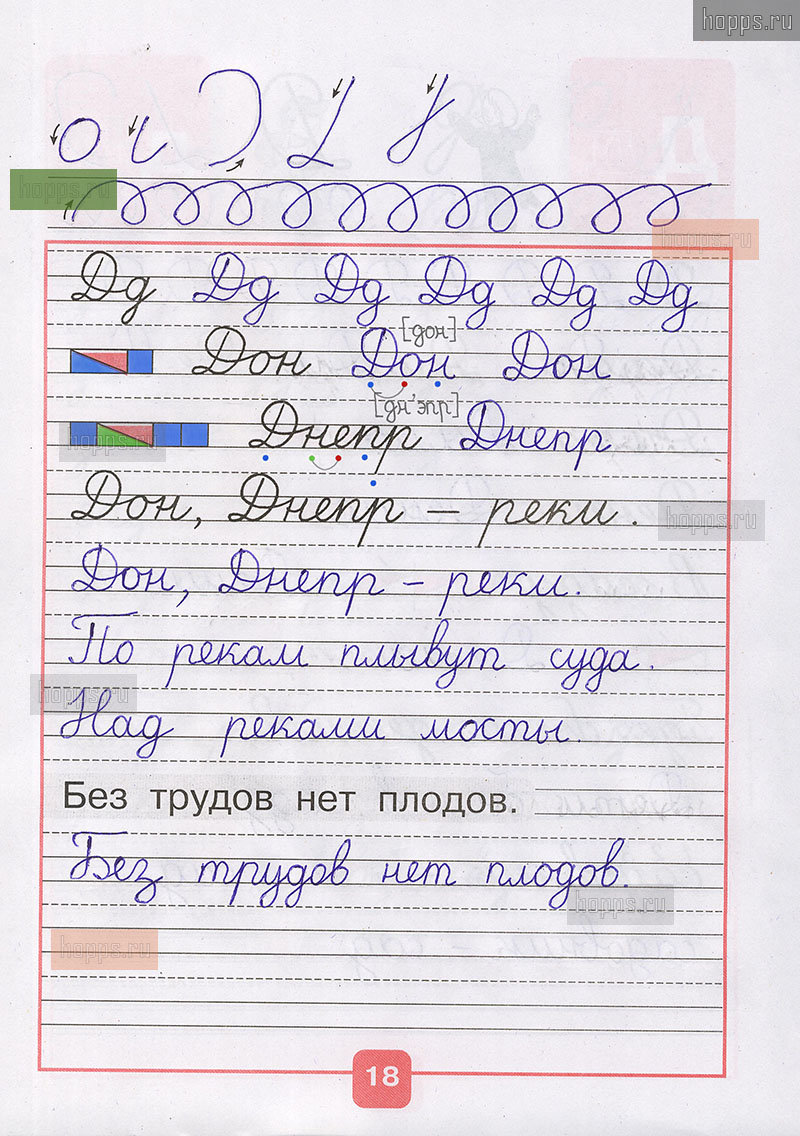 hopps.ru
hopps.ru
hopps.ru
Дд Дд Дд Дд Дд Дд
[дон]
Дон Дон Дон
[дн'эпр]
Днепр Днепр
Дон, Днепр – реки.
hopps.ru
Дон, Днепр – реки.
По рекам плывут суда.
hopps.ru
Над реками мосты.
Без трудов нет плодов.
Без трудов нет плодов.
hopps.ru
hopps.ru
18